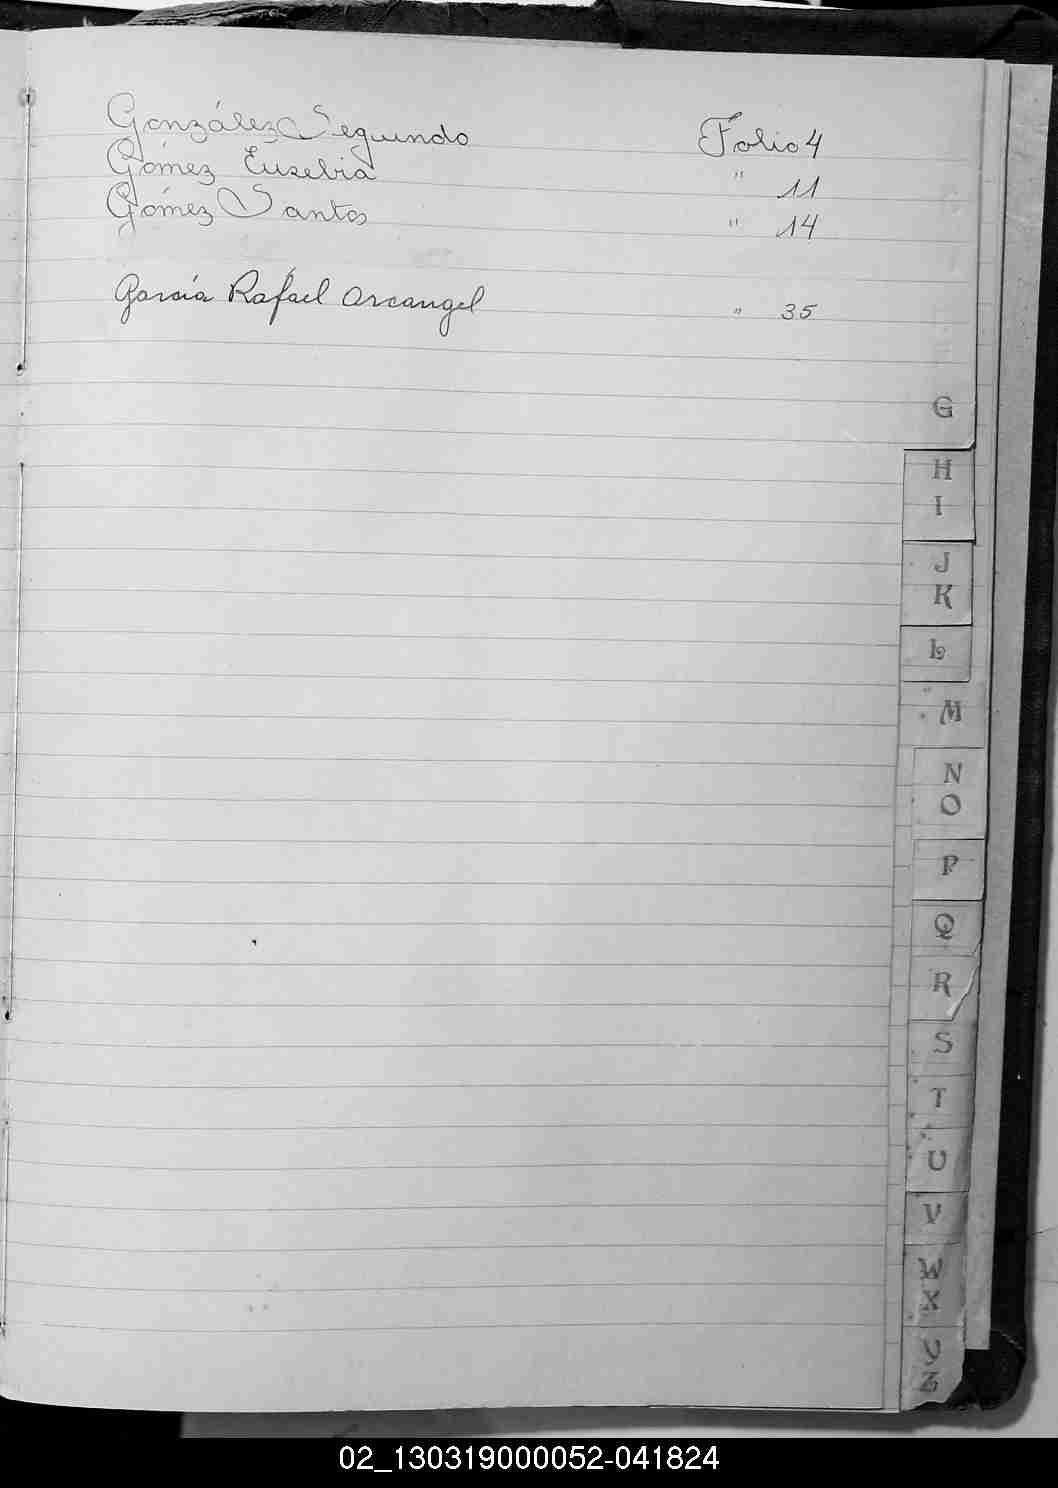 González Segundo Folio 4
Gómez Eusebia " 11
Gómez Santos " 14
García Rafael Arcangel " 35
G
H
I
J
K
L
M
N
O
P
Q
R
S
T
U
V
W
X
Y
Z
02_130319000052-041824